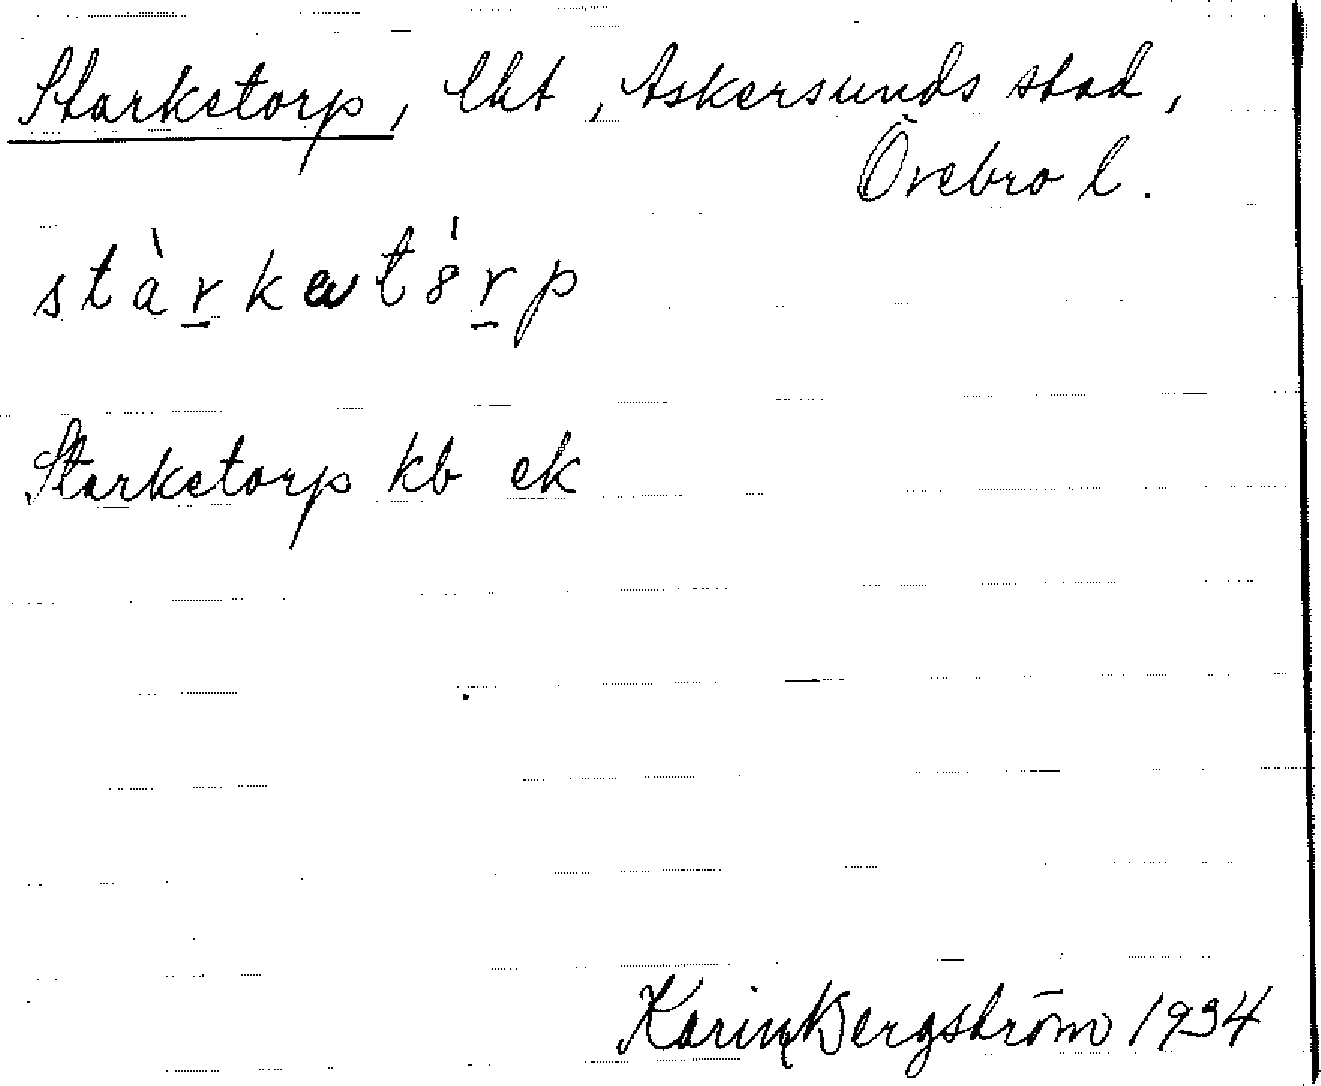 Starketorp, lht, Askersunds stad,
Örebro l.
Starketorp kb ek
Karin Bergström 1934